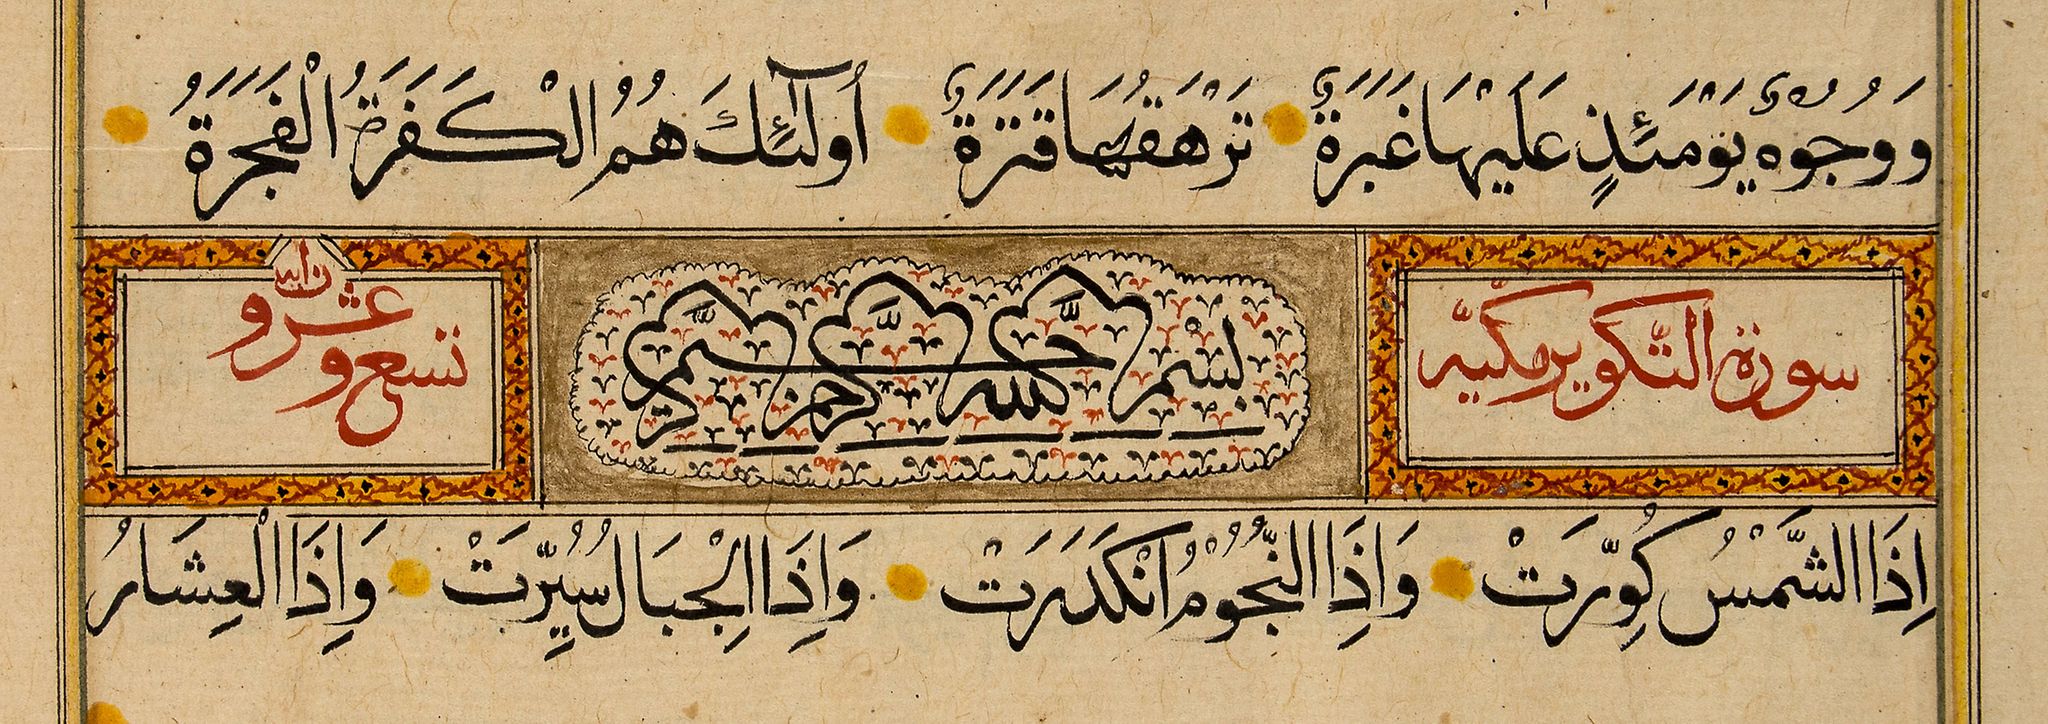 وَوُجُوهٌ يَوْمَئِذٍ عَلَيْهَا غَبَرَةٌ تَرْهَقُهَا قَتَرَةٌ أُولَٰٓئِكَ هُمُ الْكَفَرَةُ الْفَجَرَةُ
سورة التّكوير مكيّة
بسم الله الرحمن الرحيم
تسع وعشرون اية
اِذَا الشَّمْسُ كُوِّرَتْ وَاِذَا النُّجُوْمُ انْكَدَرَتْ وَاِذَا الْجِبَالُ سُيِّرَتْ وَاِذَا الْعِشَارُ